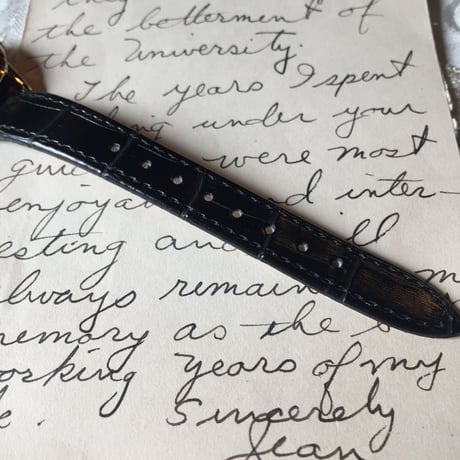 they
the betterment of
the University.
The years I spent
under your
were most
enjoya d inter-
esting an ll
lways remain m
emory as the s
orking years of my
Sincerely
Jean